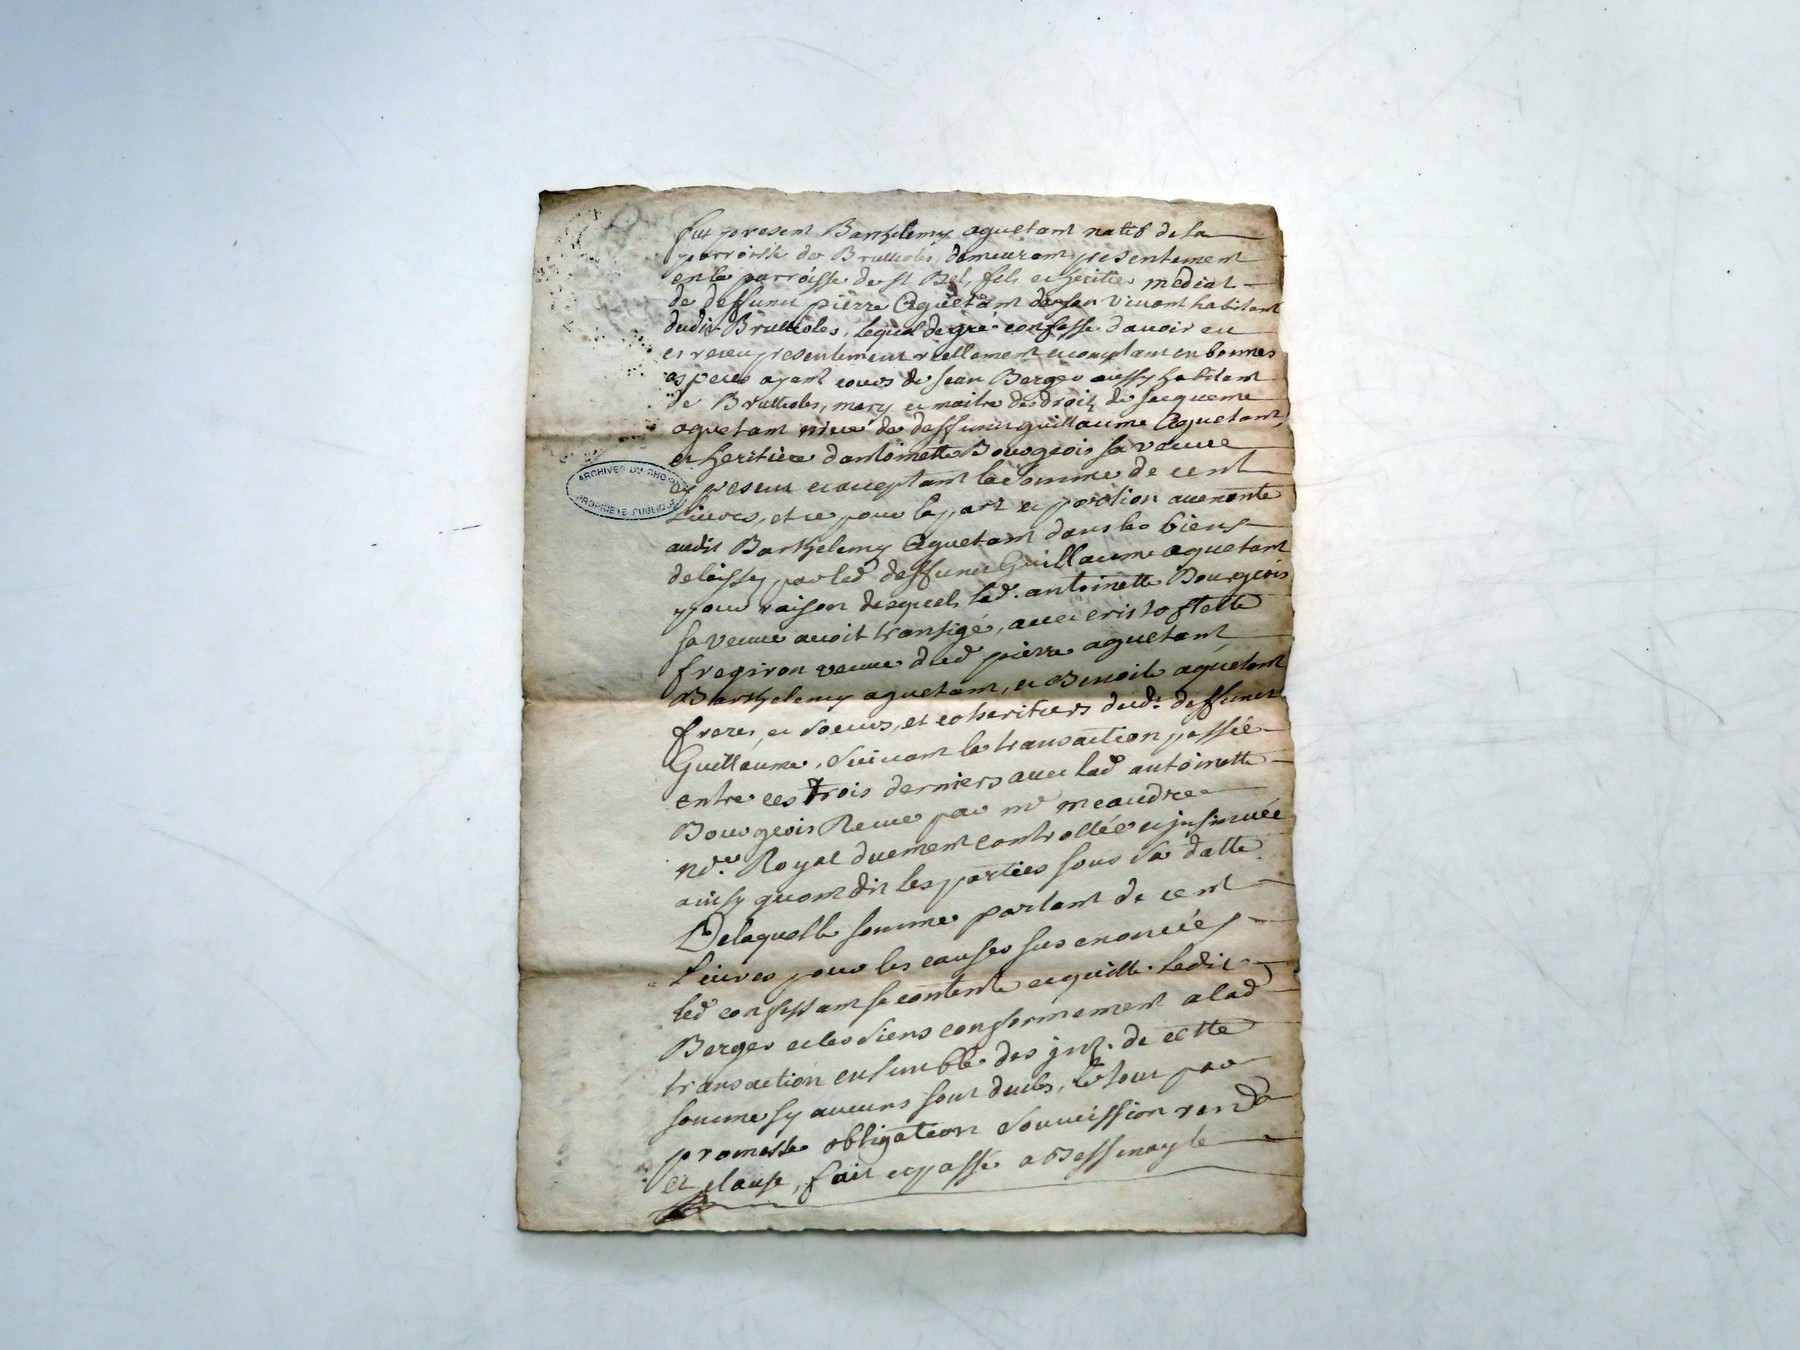 fut present Barthelemy aguetant natif de la
parroisse de Brullioles, demeurant presentement
en la parroisse de st Bel, fils et heritier mediat
de deffunct pierre Aguetant de son vivant habitant
dudit Brullioles, lequel de gré confesse d'avoir eu
et receu presentement réellement et comptant en bonnes
especes ayant cours de Jean Berger aussy habitant
de Brullioles, mary et maitre des droits de Jacqueme
aguetant niece de deffunct guillaume Aguetant,
et heritiere d'antoinette Bourgeois sa veuve
cy present et acceptant la somme de cent
Livres, et ce pour la part et portion avenante
audit Barthelemy Aguetant dans les biens
delaissez par led deffunct Guillaume aguetant
pour raison desquels lad. antoinette Bourgeois
sa veuve avoit transigé, avec cristoflette
fregiron veuve dud pierre aguetant
Barthelemy aguetant, et Benoite aguetant
freres, et soeurs, et coheritiers dud. deffunct
Guillaume, suivant la transaction passée
entre ces trois derniers avec lad antoinette
Bourgeois Receue par me meaudre
nore. Royal duement controllée et insinuée
ainsy qu'ont dit les parties sous sa datte.
De laquelle somme partant de cent
Livres pour les causes sus enoncées
led confessant se contente et quitte ledit
Berger et les siens conformement a lad
transaction ensemble des jnts. de cette
somme sy aucuns sont deubs, le tout par
promesse obligation soumission rend
et clause, fait et passé a Bessenay le
ARCHIVES DU RHONE
PROPRIETE PUBLIQUE